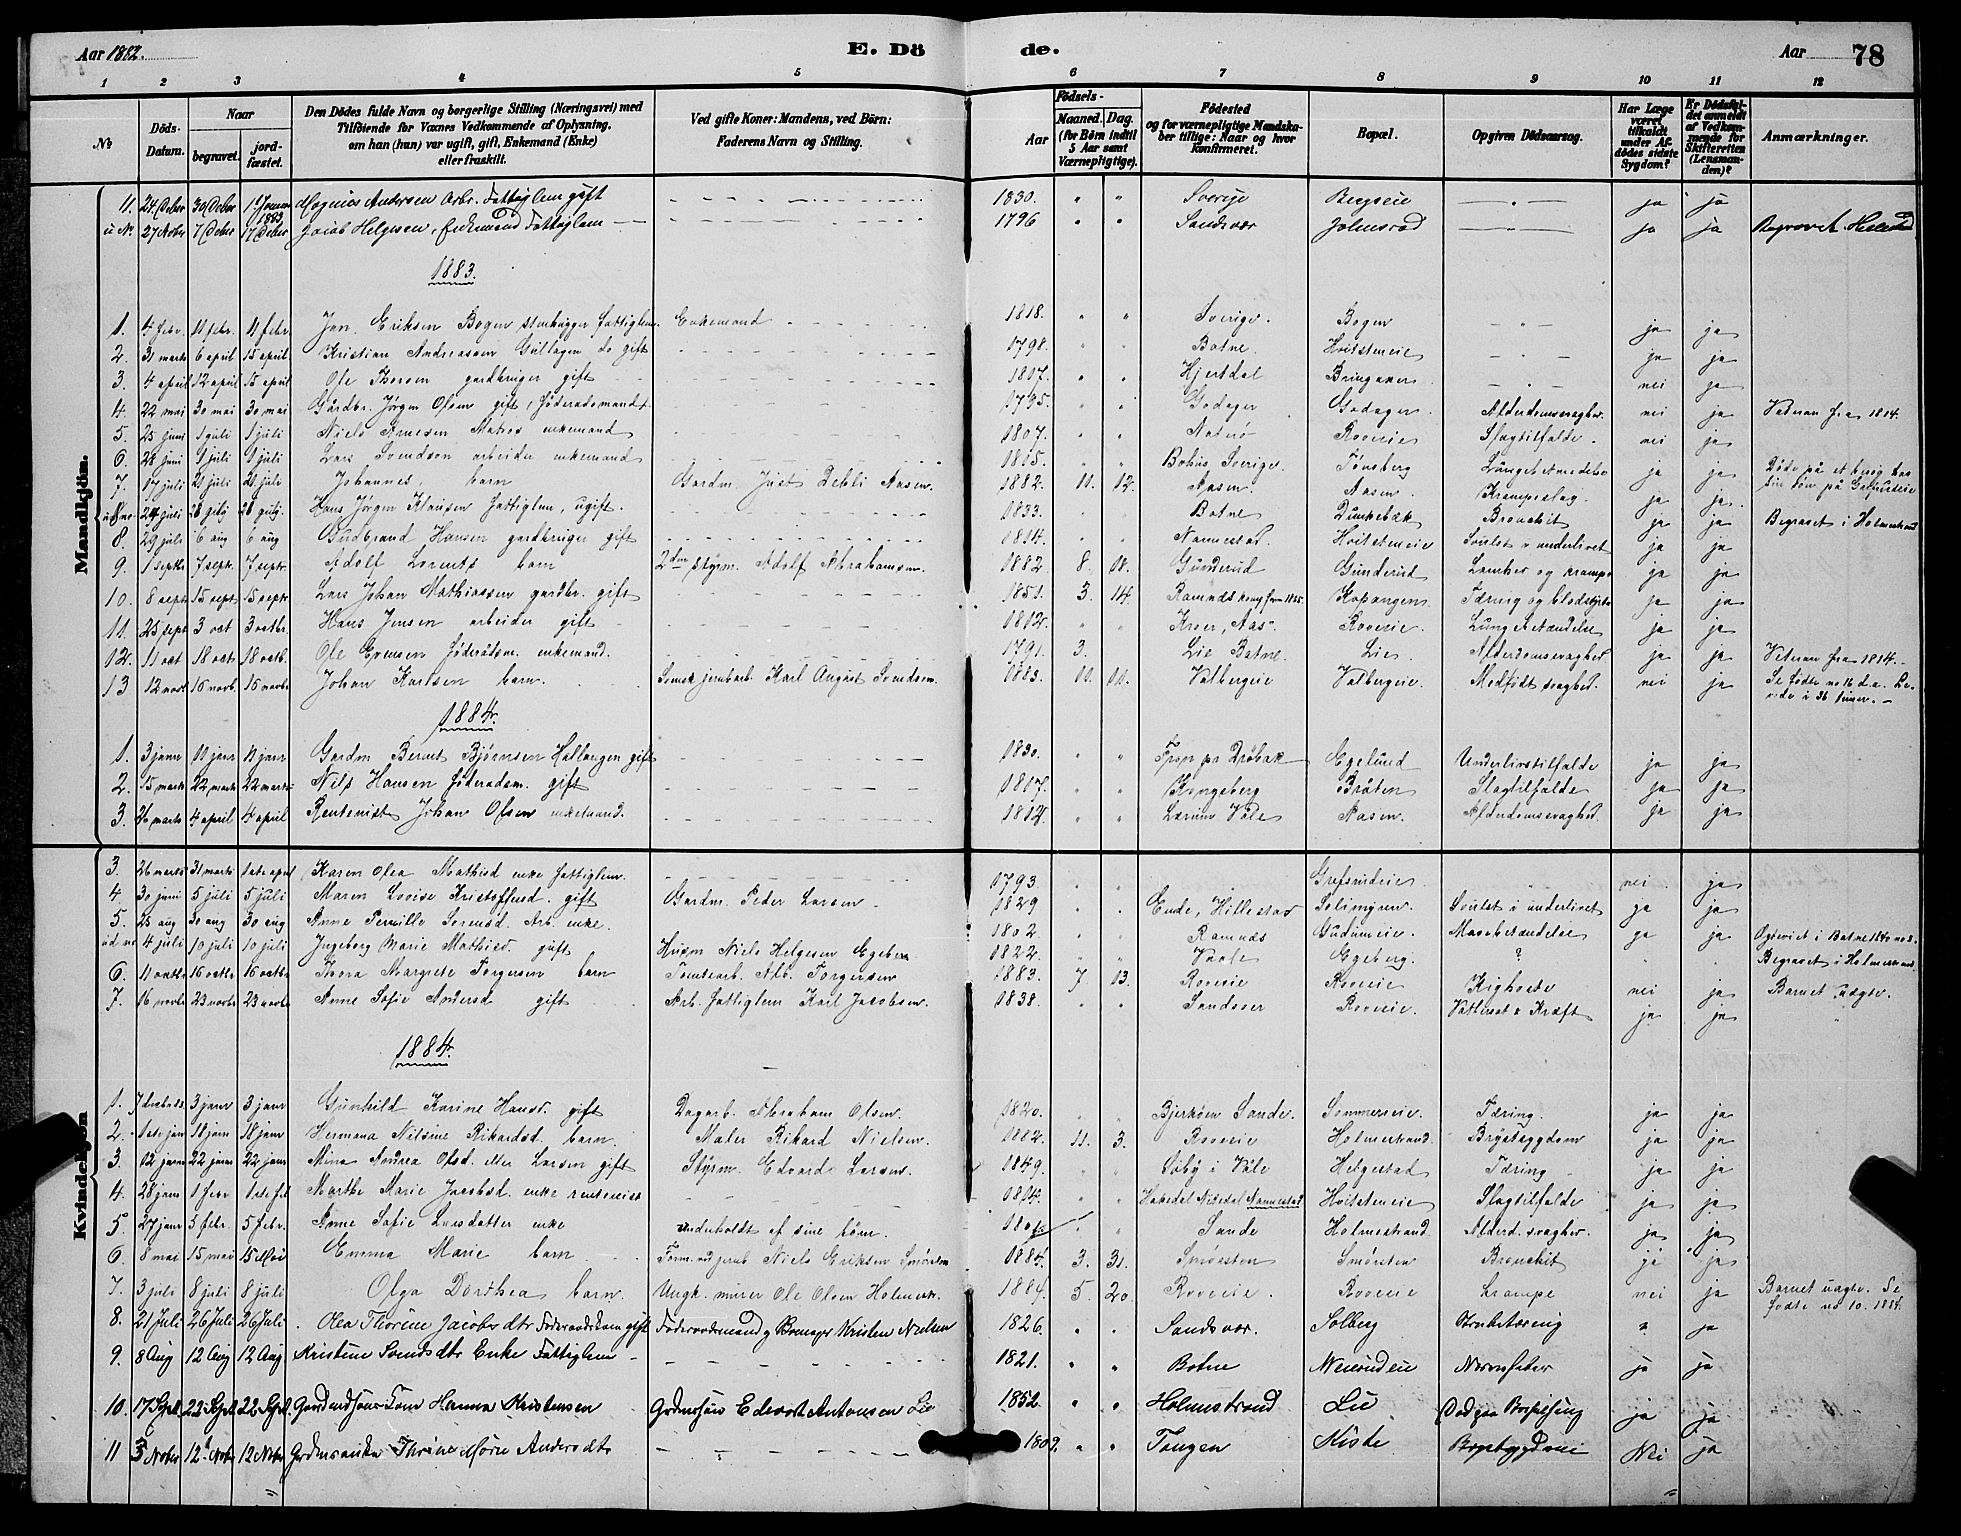 Aar 1882. E. Dö de. Aar 78
1 2 3 4 5 6 7 8 9 10 11 12
No
Döds-Datum.
Naar begravet. jordfæstet.
Den Dödes fulde Navn og borgerlige Stilling (Næringsvei) med Tilföiende for Voxnes Vedkommende af Oplysning, om han (hun) var ugift, gift, Enkemand (Enke) eller fraskilt.
Ved gifte Koner: Mandens, ved Börn: Faderens Navn og Stilling.
Födsels- Aar Maaned. Dag. (for Börn indtil 5 Aar samt Værnepligtige).
Födested og for værnepligtige Mandskaber tillige: Naar og hvor konfirmeret.
Bopæl.
Opgiven Dödsaarsag.
Har Læge været tilkaldt under Afdödes sidste Sygdom?
Er Dödsfaldet anmeldt af Vedkommende for Skifteretten (Lensmanden)?
Anmærkninger.
Mandkjön.
11. 24 Deber 30 Deber 1 Januar 1883 Magnus Andersen Arbr. Fattiglem gift 1830. Sverije Bergseie ja ja
u N. 27 Nober 7 Deber 17 Deber Jacob Helgesen, Enkemand Fattiglem 1796 Sandsvær Jolmsrød ja ja Begravet
1883.
1. 4 febr. 11 febr. 11 febr. Jon Eriksen Bogen stenhugger fattiglem. Enkemand 1818. Sverige. Bogen ja ja
2. 31 marts 6 april 15 april Kristian Andreassen Gullagen do gift 1798. Botne Hvitsteneie ja ja
3. 4 april 12 april 15 april Ole Thorsen gardbruger gift 1807. Hjertdal Bringaker nei ja
4. 22 mai 30 mai 30 mai Gårdbr. Jørgen Olsen gift, föderadsmand 1795. Godager Godager Alderdomssvaghed nei ja Veteran fra 1814.
5. 25 juni 1 juli 1 juli Niels Arnesen Matros enkemand 1807. Roveie Slagtilfælde. nei ja
6. 28 juni 9 juli 9 juli Lars Svendsen arbeider enkemand 1815. Bohus Sverige. Tönsberg Lungebetændelse ja ja Döde på et besøg hos sin sön på Grefsrudeie
7. 17 juli 21 juli 21 juli Johannes, barn Gardm. Just Aasen. 1882. 11. 12. Aasen. Aasen. Krampeslag ja ja.
24 juli 28 julij 28 julij. Hans Jörgen Klausen fattiglem, ugift. 1833. Botne Dunkebæk Bronchit ja ja Begravet i Holmestrand
8. 29 juli 6 aug 6 aug Gudbrand Hansen gardbruger gift 1814. Nannestad. Hvitsteneie Svulst i underlivet ja ja
9. 1 septr 7 septr. 7 septr. Adolf Lorents barn 2den styrm. Adolf Abrahamsen. 1882. 8. 18. Gunderud Gunderud og krampe ja ja
10. 8 sept 15 sept 15 sept. Lars Johan Mathiassen gardbr. gift 1851. 3. 14. Ramnæs Kopangen Tæring og blodstyrtn ja ja
11. 25 sept 3 oct 3 octbr. Hans Jensen arbeider gift 1812. Kroer, Aas. Roveie. Lungebetændelse ja ja
12. 11 oct 18 oct 18 octb. Ole Evensen föderådsm. enkemand. 1791. 3. Lie Botne. Lie. Alderdomssvaghed ja ja Veteran fra 1814.
13 12 novb 16 novb. 16 novbr Johan Karlsen barn. Svensk jernbarb. Karl August Svendsen. 1883. Valbergeie Valbergeie. Medfödt svaghed. nei ja Se födte no 16 d.a. Levede i 36 timer.
1884.
1. 3 janr 11 janr 11 janr Gardm Bernt Björnsen Hallangen gift 1830. Egelund Underlivstilfælde ja ja
2. 15 marts 22 marts 22 marts Nils Hansen föderadsm. gift 1807. Kongsberg Bråten Slagtilfælde ja ja
3. 26 marts 4 april 4 april Rentenist Johan Olsen enkemand. 1812. Våle Aasen. Alderdomssvaghed. ja ja
Kvindekjön
3. 26 marts 31 marts 1ste april Karen Olea Mathisd enke fattiglem. 1793. Grefsrudeie. nei ja
4. 30 juni 5 juli 5 juli Maren Lovise Kristoffersd. gift Gardm. Peder Larsen. 1829 Ende, Hillestad Solimyren. Svulst i underlivet ja ja
5. 25 aug 30 aug 30 aug Anne Pernille Sörensd. Arb. enke. 1802. Ramnæs Gudumeie. Mavebetændelse ja ja
4 juli 10 juli 10 juli Ingeborg Marie Mathisd. gift Husm Niels Helgesen Egeberg 1822. Vaale Egeberg. ? Begravet i Holmestrand
6. 11 octbr 16 octbr 16 octbr Thora Margrete Torgersen barn Tomtearb. Alb. Torgersen 1883. 7 13. Roveie Roveie Kighoste nei ja Barnet uægte.
7. 16 novbr 23 novbr 23 novbr Anne Sofie Andersd gift Arb. fattiglem Karl Jacobsen. 1838. Sandsvær Roveie. Vattersot & Kræft ja ja
1884.
1. 3 janr 3 janr Gunhild Karine Hansd. gift Dagarb. Abraham Olsen. 1820. Bjerköen Sande. Sommerseie. Tæring. ja ja
2. 18 janr 18 janr Hermana Nilsine Rikardsd. barn. Maler Rikard Nielsen. 1882. 11. 3. Roveie Holmestrand. Brystsygdom ja ja
3. 12 janr 22 janr 22 janr Mina Andrea Olsd. eller Larsen gift Styrm. Edvard Larsen. 1849. Söby i Våle Helgestad Tæring ja ja
4. 28 janr 1 febr 1ste feb Marthe Marie Jacobsd. enke rentenist 1814. Hakedal Nitedal Nannestad Hvitsteneie Slagtilfælde ja ja
5. 27 janr 5 febr. 5 febr. Anne Sofie Larsdatter enke underholdt af sine börn. Sande Holmestrand Alderd. svaghed. ja ja
6. 8 mai 15 mai 15 Mai Emma Marie barn Niels Eriksen Smörsten 1884. 3. 31. Smörsten Smörsten Bronchit ja ja
7. 3 juli 8 juli 8 juli Olga Dorthea barn. Ungk. murer Ole Olsen Holmestr. 1884. 5. 20. Roveie. Roveie Krampe nei ja Barnet uægte. Se födte no 10. 1884.
8. 21 Juli 26 Juli 26 Juli. Olea Thorine Jacobsdtr Føderaadskone gift Føderaadsmand Kristen Nielsen 1826. Sandsvær. Solberg Brystetæring ? ja
9. 8 Aug 12 Aug 12 Aug Kristine Svendsdtr Enke Fattiglem 1821. Botne Neierudeie Nervefeber ja ja
10. 17 Sept. 22 Sept 22 Sept. Hanna Kristensen Edvart Antonsen Lie 1852. Holmestrand Lie Død paa Barselseng ja ja
11 3 Nober 12 Nober 12 Nober Andersdtr 1809. Tangen Kiste Nei ja